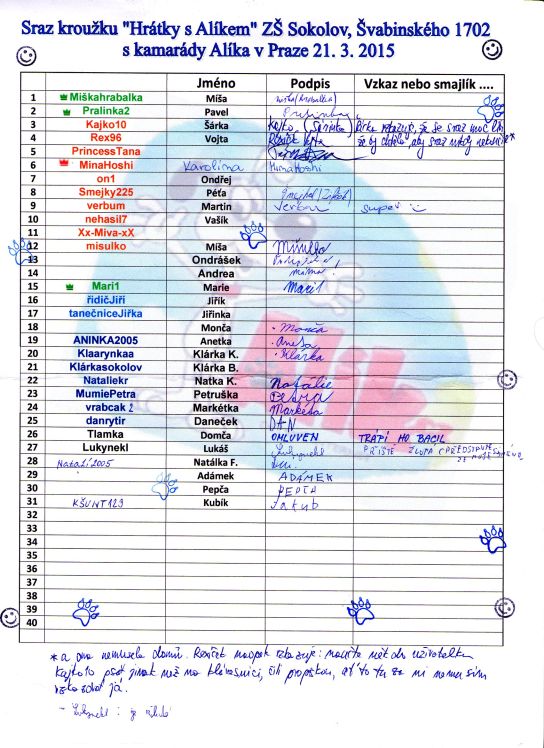 Sraz kroužku "Hrátky s Alíkem" ZŠ Sokolov, Švabinského 1702
s kamarády Alíka v Praze 21. 3. 2015
Jméno Podpis Vzkaz nebo smajlík ....
1 Miškahrabalka Míša
2 Pralinka2 Pavel
3 Kajko10 Šárka Kajko že se sraz moc
4 Rex96 Vojta
5 PrincessTana
6 MinaHoshi Karolína MinaHoshi
7 on1 Ondřej
8 Smejky225 Péťa
9 verbum Martin Verbum super
10 nehasil7 Vašík
11 Xx-Miva-xX
12 misulko Míša Misulko
13 Ondrášek
14 Andrea mamka
15 Mari1 Marie Mari1
16 řidičJiří Jiřík
17 tanečniceJiřka Jiřinka
18 Monča Monča
19 ANINKA2005 Anetka Aneta
20 Klaarynkaa Klárka K. Klárka
21 Klárkasokolov Klárka B.
22 Nataliekr Natka K. Natálie
23 MumiePetra Petruška Petra
24 vrabcak 2 Markétka Markéta
25 danrytir Daneček DAN
26 Tlamka Domča OMLUVEN TRÁPÍ HO BACIL
27 Lukynekl Lukáš Lukynekl PŘÍŠTĚ
28 Nataží2005 Natálka F.
29 Adámek ADÁMEK
30 Pepča PEPČA
31 KŠUNT129 Kubík Jakub
32
33
34
35
36
37
38
39
40
* a ona nemusela domů. Rexíček naopak vzkazuje: naučte mět dn uživatelku
Kajko10 psát jinak než na klávesnici, čili propiskou, ať to tu za ni nemusím
vzkazovat já.
Lukynekl :